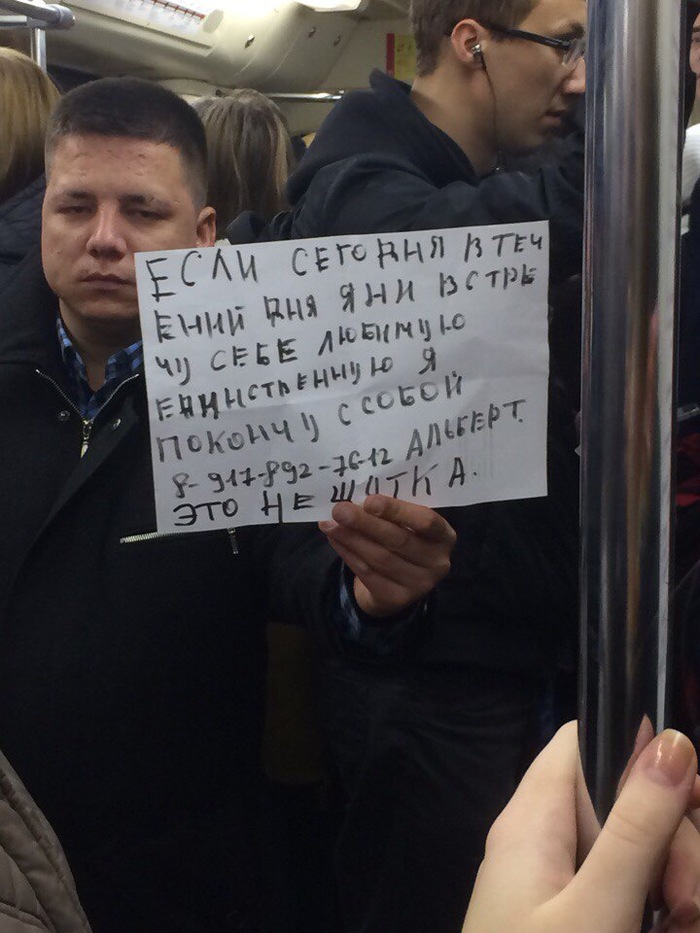 ЕСЛИ СЕГОДНЯ В ТЕЧ
ЕНИЙ ДНЯ Я НИ ВСТРЕ
ЧУ СЕБЕ ЛЮБИМУЮ
ЕДИНСТВЕННУЮ Я
ПОКОНЧУ С СОБОЙ
8-917-892-76-12 АЛЬБЕРТ.
ЭТО НЕ ШУТКА.